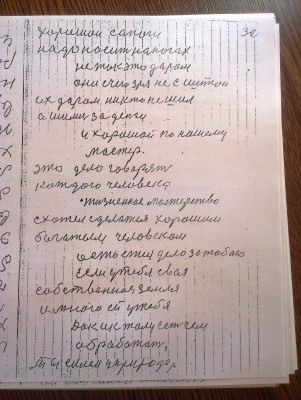 32
хорошой сапоги
надо носит на ногах
не так это даром
они с чего зря не с шитой
их даром никто не шил
а шили за денги
и хорошой по нашему
мастер.
это дело говорят
каждого человека
жизненное мастерство
схотел сделатся хорошим
богатым человеком
остается дело за тобою
если у тебя своя
собственная земля
и много ей у тебя
обработат,
ты силен у природе,